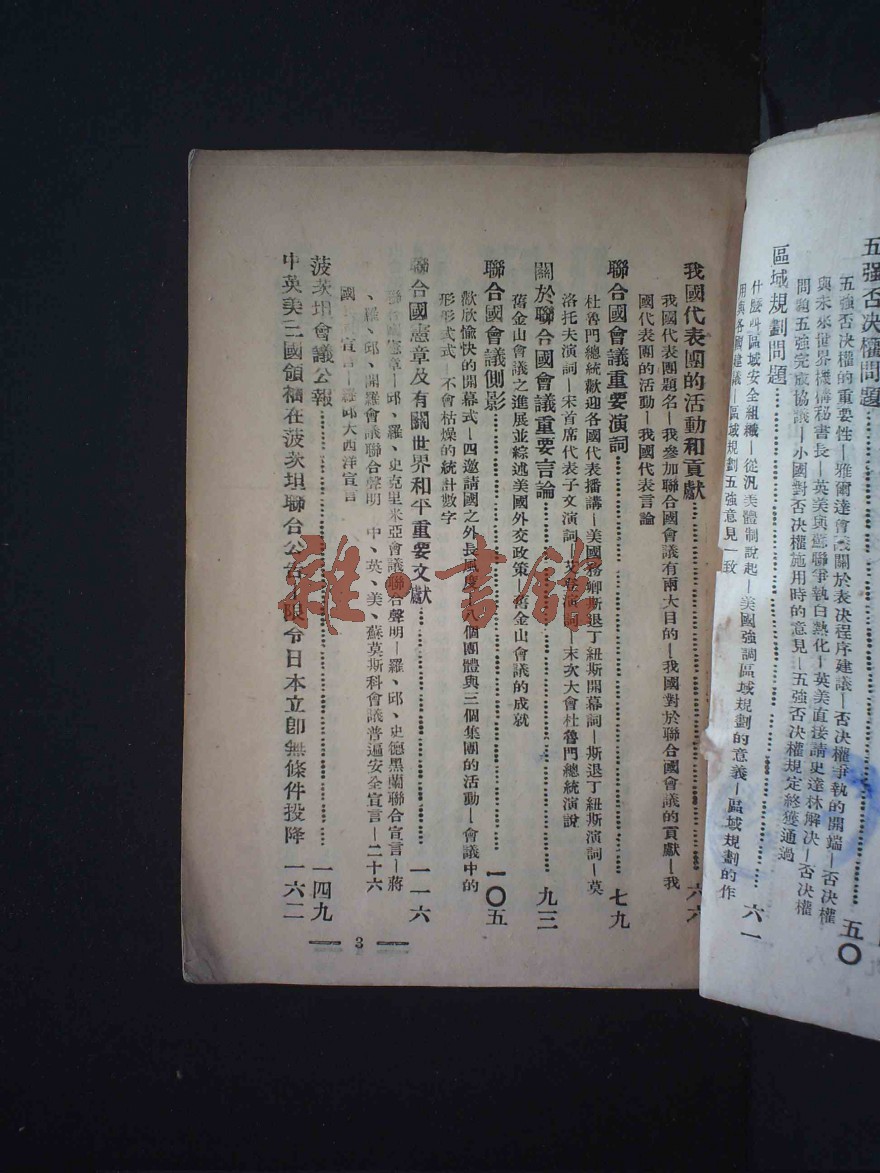 五强否决權問題……五〇
五强否决權的重要性—雅爾達會議關於表决程序建議—否决權爭執的開端—否决權
與未來世界機構秘書長—英美與蘇聯爭執白熱化—英美直接請史達林解决—否决權
問題五强完成協議—小國對否决權施用時的意見—五强否决權規定終獲通過
區域規劃問題……六一
什麼叫區域安全組織—從汎美體制說起—美國強調區域規劃的意義—區域規劃的作
用與各國建議—區域規劃五强意見一致
我國代表團的活動和貢獻……六六
我國代表團題名—我參加聯合國會議有兩大目的—我國對於聯合國會議的貢獻—我
國代表團的活動—我國代表言論
聯合國會議重要演詞……七九
杜魯門總統歡迎各國代表播講—美國務卿斯退丁紐斯開幕詞—斯退丁紐斯演詞—莫
洛托夫演詞—宋首席代表子文演詞—艾登演詞—末次大會杜魯門總統演說
關於聯合國會議重要言論……九三
舊金山會議之進展並綜述美國外交政策—舊金山會議的成就
聯合國會議側影……一〇五
歡欣愉快的開幕式—四邀請國之外長風度—八個團體與三個集團的活動—會議中的
形形式式—不會枯燥的統計數字
聯合國憲章及有關世界和平重要文獻……一一六
聯合國憲章—邱、羅、史克里米亞會議聯合聲明—羅、邱、史德黑蘭聯合宣言—蔣
、羅、邱、開羅會議聯合聲明 中、英、美、蘇莫斯科會議普遍安全宣言—二十六
國 宣言—羅邱大西洋宣言
菠茨坦會議公報……一四九
中英美三國領袖在菠茨坦聯合公告限令日本立卽無條件投降 一六二
3
雜書館